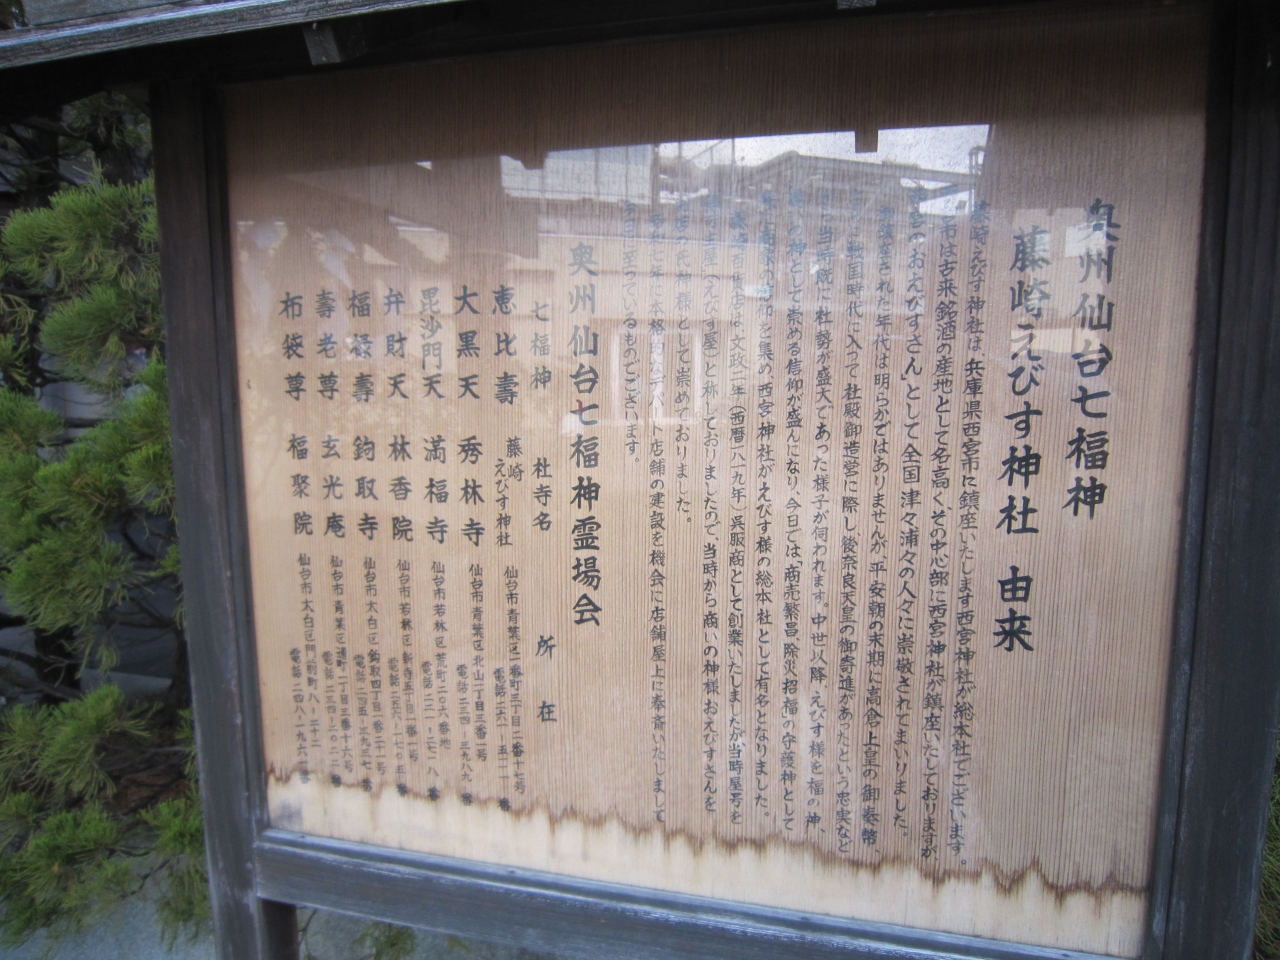 奥州仙台七福神
藤崎えびす神社 由来
崎えびす神社は、兵庫県西宮市に鎮座いたします西宮神社が総本社でございます。
市は古来銘酒の産地として名高く、その中心部に西宮神社が鎮座いたしておりますが、
おえびすさん」として全国津々浦々の人々に崇敬されてまいりました。
された年代は明らかではありませんが、平安朝の末期に高倉上皇の御奉幣、
当時既に社勢が盛大であった様子が伺われます。中世以降、えびす様を福の神、
戦国時代に入って社殿御造営に際し、後奈良天皇の御寄進があったという忠実など
の神として崇める信仰が盛んになり、今日では、「商売繁昌、除災招福」の守護神として
を集め、西宮神社がえびす様の総本社として有名となりました。
百貨店は、文政二年(西暦一八一九年)呉服商として創業いたしましたが、当時屋号を
屋(えびす屋)と称しておりましたので、当時から商いの神様おえびすさんを
氏神様として崇めておりました。
七年に本格的なデパート店舗の建設を機会に店舗屋上に奉斎いたしまして
至っているものでございます。
奥州仙台七福神霊場会
七福神 社寺名 所在
恵比壽 藤崎えびす神社 仙台市青葉区一番町三丁目二番十七号
大黒天 秀林寺 仙台市青葉区北山一丁目三番一号 電話二三四-三九八九番
毘沙門天 満福寺 仙台市若林区荒町二〇六番地
弁財天 林香院 仙台市若林区新寺五丁目一番一号
福禄壽 鈎取寺 仙台市太白区鈎取四丁目
壽老尊 玄光庵 仙台市青葉区通町一丁目三番十六号
布袋尊 福聚院 仙台市太白区門前町八-二十二